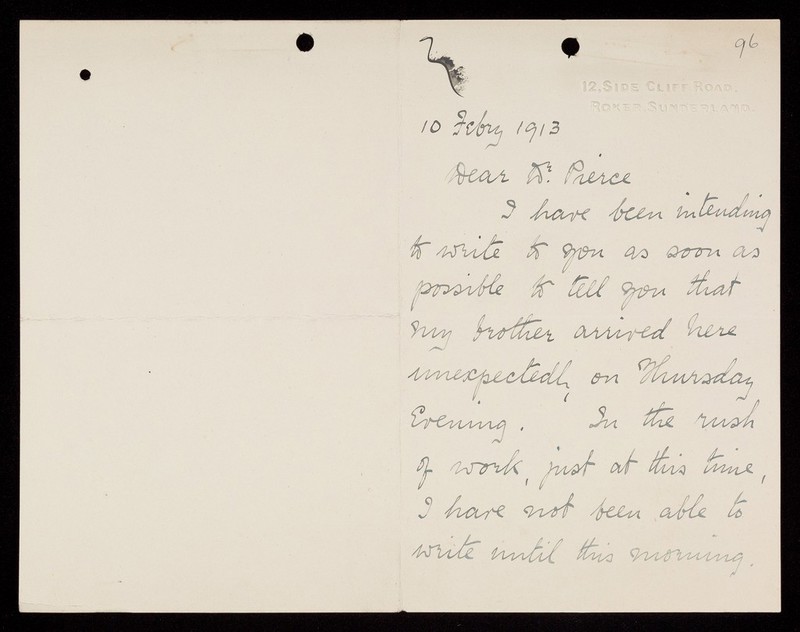 96
12, SIDE CLIFF ROAD,
ROKER, SUNDERLAND.
10 Febry 1913
Dear Dr. Pierce
I have been intending
to write to you as soon as
possible to tell you that
my brother arrived here
unexpectedly, on Thursday
Evening. In the rush
of work, just at this time,
I have not been able to
write until this morning.